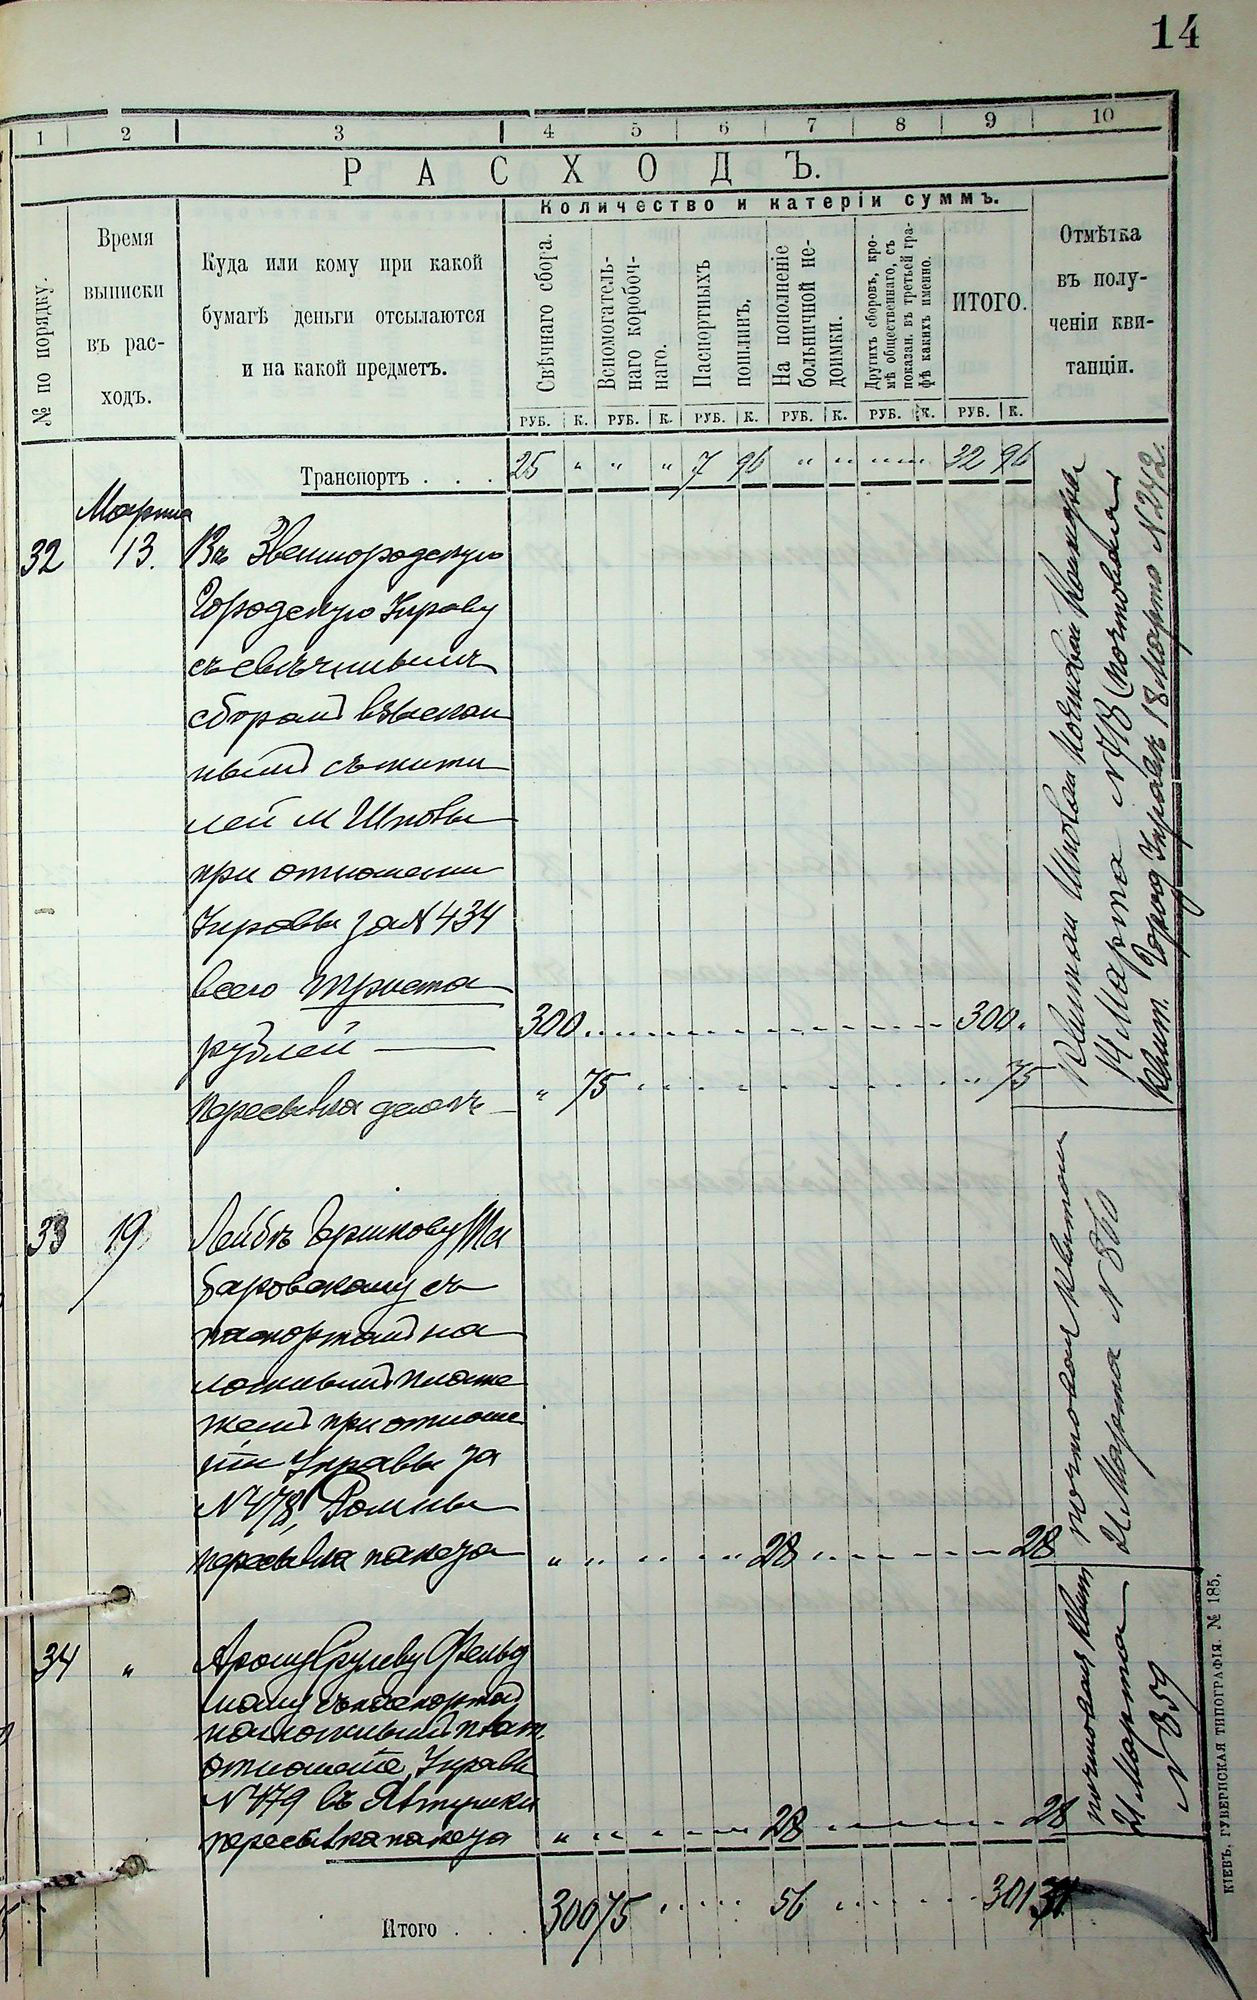 14
1 2 3 4 5 6 7 8 9 10
РАСХОДЪ.
Количество и катерiи суммъ.
№ по порядку.
Время
выписки
въ рас-
ходъ.
Куда или кому при какой
бумагѣ деньги отсылаются
и на какой предметъ.
Свѣчнаго сбора.
Вспомогатель-
наго коробоч-
наго.
Паспортныхъ
пошлинъ.
На пополненiе
больничной не-
доимки.
Другихъ сборовъ, кро-
мѣ общественнаго, съ
показан. въ третьей гра-
фѣ какихъ именно.
ИТОГО.
Отмѣтка
въ полу-
ченiи кви-
танцiи.
РУБ. К. РУБ. К. РУБ. К. РУБ. К. РУБ. К. РУБ. К.
Транспортъ . . . 25 „ „ „ 7 96 „ „ „ „ 32 96
Марта
32 13. Въ Звенигородскую
Городскую Управу
съ свѣчнымъ
сборомъ взыскан
нымъ съ жите
лей м Шполы
при отношенiи
Управы за N 434
всего триста
рублей — 300 300
Пересылка денегъ — „ 75 „ 75
Квитан Шполян Почтовой Конторы
14 Марта N 98 (почтовая)
Квит. Город Управы 18 Марта N 242.
33 19 Лейбѣ Гершкову
баровскому съ
паспортомъ на
ложнымъ плате
жемъ при отноше
нiи Управы за
N 478, Ромны
пересылка пакета „ „ 28 28
почтовая Квитан
21 Марта N 860
34 „ Арону Срулеву Фельд
ману съ паспортом
наложнымъ плат
отношенiе Управы
N 479 въ Ялтушки
пересылка пакета „ „ 28 28
почтовая Квит
21 Марта
N 859
Итого . . . 300 75 56 301 31
КIЕВЪ, ГУБЕРНСКАЯ ТИПОГРАФIЯ. № 185,